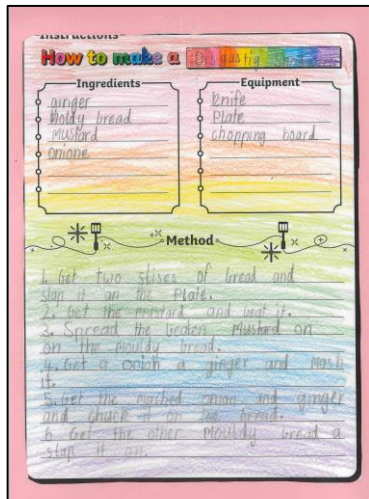 Instructions
How to make a Disgustig
Ingredients
ginger
Moldy bread
Mustard
onione
Equipment
knife
Plate
chopping board
Method
1. Get two slises of bread and
slap it on the Plate.
2. Get the mustard and beat it.
3. Spread the beaten Mustard on
on the mouldy bread.
4. Get a onion a ginger and Mash
it.
5. Get the mashed onion and ginger
and chuck it on the bread.
6 Get the other Mouldy bread a
slap it on.